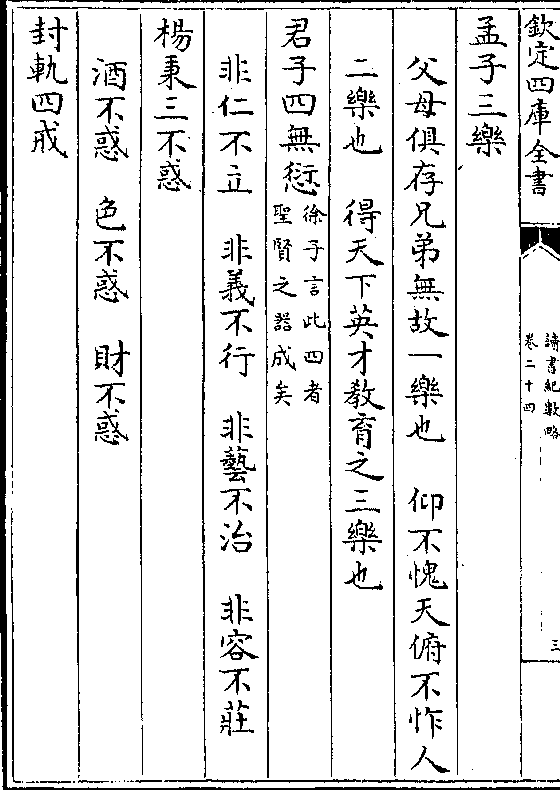 欽定四庫全書
讀書紀數略
卷二十四
三
孟子三樂
父母俱存兄弟無故一樂也　仰不愧天俯不怍人
二樂也　得天下英才敎育之三樂也
君子四無愆徐子言此四者
聖賢之器成矣
非仁不立　非義不行　非藝不治　非容不莊
楊秉三不惑
酒不惑　色不惑　財不惑
封軌四戒